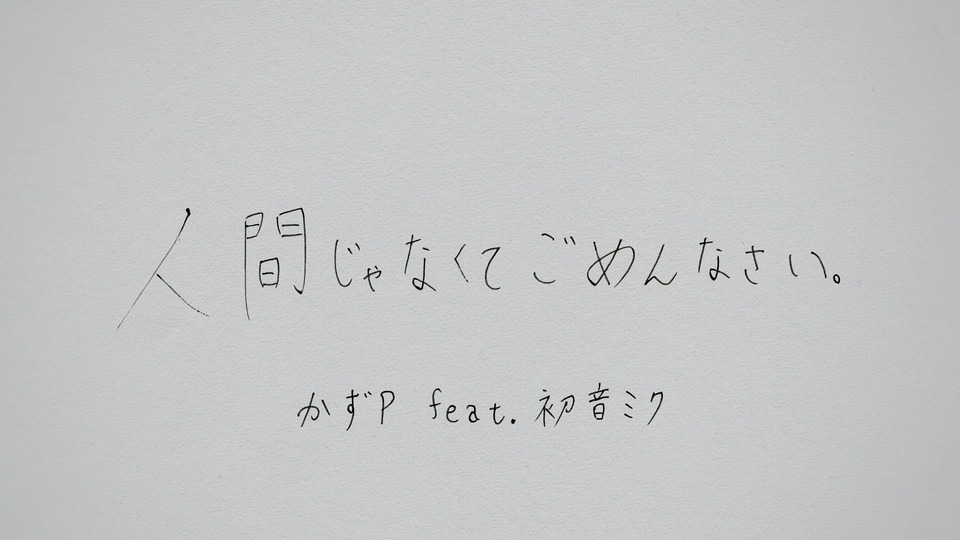 人間じゃなくてごめんなさい。
かずP feat.初音ミク